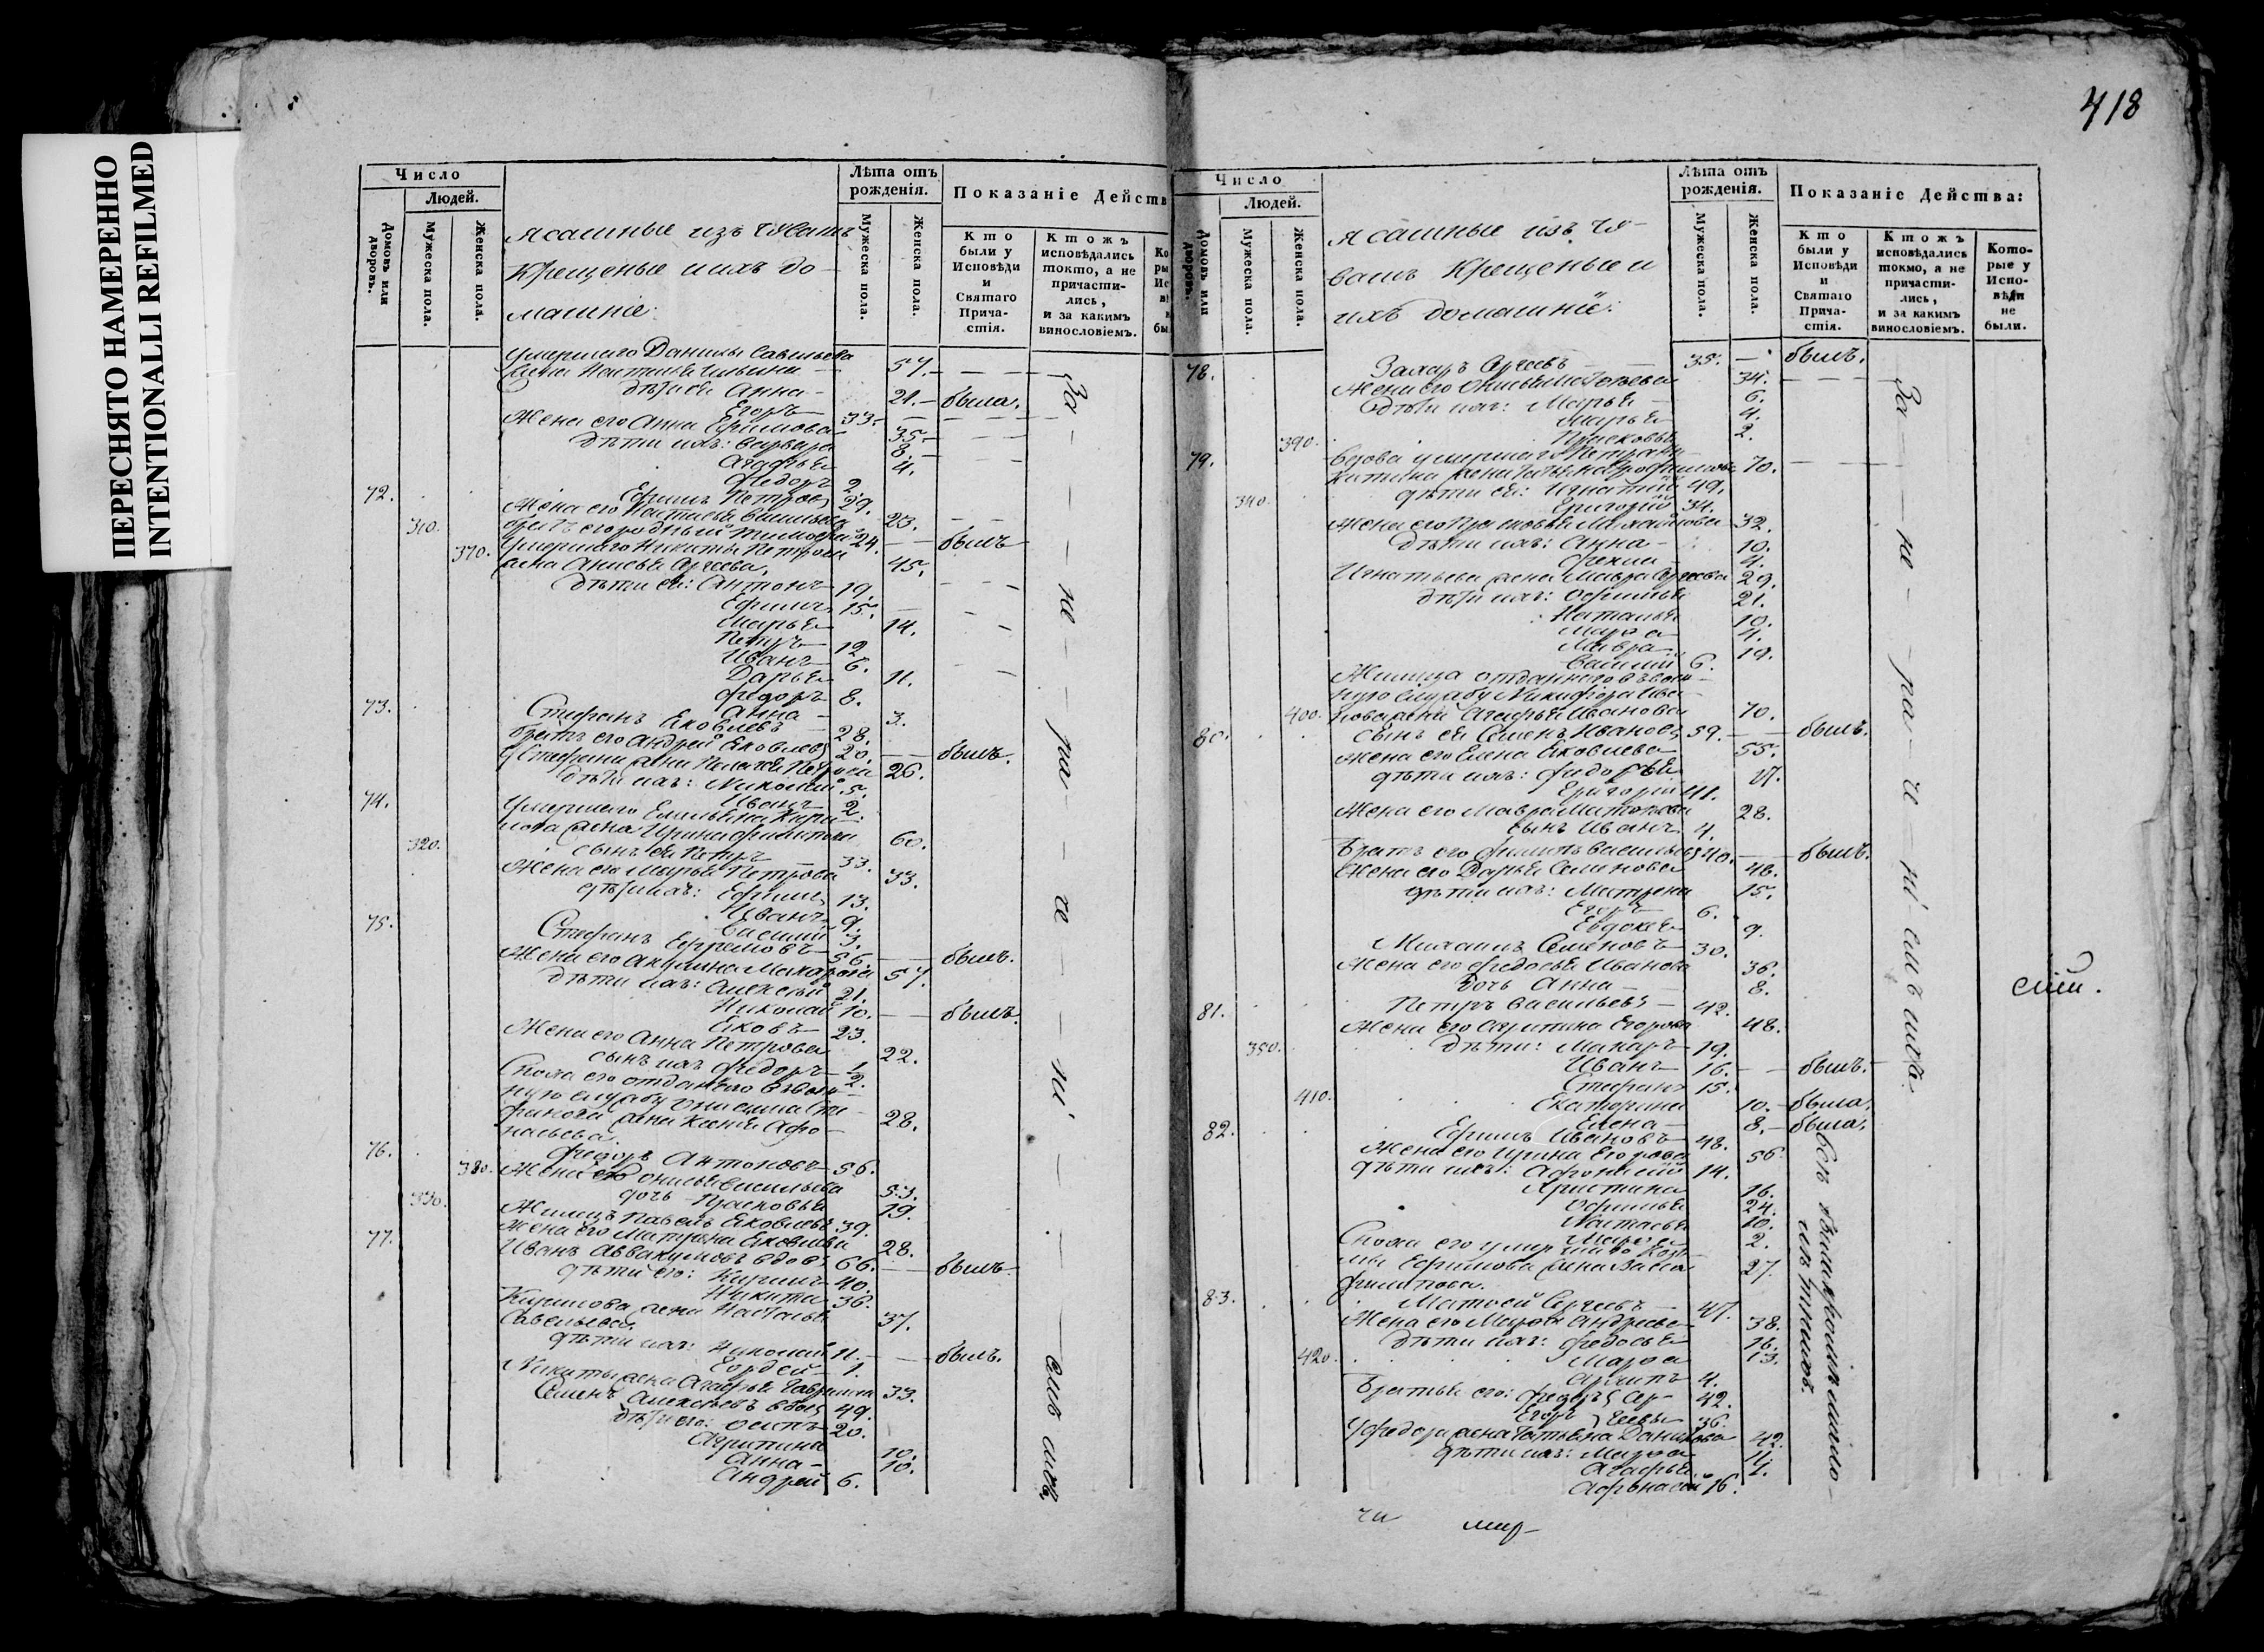 ПЕРЕСНЯТО НАМЕРЕННО
INTENTIONALLI REFILMED
Число
Людей.
Домовъ или дворовъ.
Мужеска пола.
Женска пола.
Ясашные изъ чувашъ
крещеные и ихъ до-
машніе:
Лѣта отъ рожденія.
Мужеска пола.
Женска пола.
Показаніе Действ
Кто были у Исповѣди и Святаго Прича-стія.
Ктожъ исповѣдались токмо, а не причасти-лись, и за какимъ винословіемъ.
Умершаго Данилы Савельева
жена Настасья 57.
дѣти ея Анна 21. была.
Егоръ 33.
Жена его Анна Ефимова 35.
дѣти ихъ: Варвара 8.
Агафья 4.
Федоръ 2.
72. Ефимъ Петровъ 29.
Жена его Настасья Васильева 23.
310. братъ его родный Тимофей 24. былъ
370. Умершаго Никиты Петрова
жена Анисья Сергеева. 45.
дѣти ея: Антонъ 19.
Ефимъ 15.
Марья 14.
Петръ 12
Иванъ 6.
Дарья 11.
Федоръ 8.
Анна 3.
73. Стефанъ Яковлевъ 28.
братъ его Андрей Яковлевъ 20. былъ.
У Стефана жена Пелагея Петрова 26.
дѣти ихъ: Николай 5.
Иванъ 2.
74. Умершаго Емельяна Кири-
лова жена Ирина Филипова 60.
320. сынъ ея Петръ 33.
Жена его Марья Петрова 33.
дѣти ихъ: Ефимъ 13.
Иванъ 9.
Василий 3.
75. Стефанъ Ефремовъ 56. былъ.
Жена его Акулина Макарова 57.
дѣти ихъ: Алексей 21.
Николай 10. былъ.
Яковъ 23.
Жена его Анна Петрова 22.
сынъ ихъ Федоръ 2.
Сноха его отданнаго въ воен-
ную службу Онисима Сте-
фанова жена Ксенья Афо- 28.
насьева.
76. Федоръ Антоновъ 56.
380. Жена его Васильева 53.
дочь Прасковья 19.
330. Жилецъ Павелъ Яковлевъ 39.
Жена его Матрена Яковлева 28.
77. Иванъ Аввакумовъ вдовъ 66. былъ
дѣти его: Кирилъ 40.
Никита 36.
Кирилова жена Наталья 37.
Савельева.
дѣти ихъ: Николай 11. былъ.
Гордей 1.
Никиты жена Агафья Гаврилова 33.
Семенъ Алексеевъ вдовъ 49.
дѣти его: Осипъ 20.
Агрипина 10.
Анна 10.
Андрей 6.
За не ра де ні емъ
418
Число
Людей.
Домовъ или дворовъ.
Мужеска пола.
Женска пола.
Ясашные изъ чу-
вашъ крещеные и
ихъ домашніе:
Лѣта отъ рожденія.
Мужеска пола.
Женска пола.
Показаніе Действа:
Кто были у Исповѣди и Святаго Прича-стія.
Ктожъ исповѣдались токмо, а не причасти-лись, и за какимъ винословіемъ.
Кото-рые у Испо-вѣди не были.
78. Захаръ Сергеевъ 35. былъ.
Жена его Матвеева 34.
дѣти ихъ: Марья 6.
Марья 4.
390. Прасковья 2.
79. Вдова умершаго Петра
Никитина жена Татьяна Трофимова 70.
340. дѣти ея: Игнатий 49.
Григорий 34.
Жена его Прасковья Михайлова 32.
дѣти ихъ: Анна 10.
Фекла 4.
Игнатьева жена Мавра Сергеева 29.
дѣти ихъ: Офимья 21.
Наталья 10.
Марфа 4.
Мавра 19.
Василий 6.
Жилица отданнаго въ воен-
ную службу Никифора Ива-
400. нова жена Агафья Иванова 70.
80. сынъ ея Семенъ Ивановъ 59. былъ.
Жена его Елена Яковлева 55.
дѣти ихъ: Федосья 17.
Григорий 11.
Жена его Мавра Матвеева 28.
сынъ Иванъ 4.
Братъ его Филипъ Васильевъ 40. былъ.
Жена его Дарья Семенова 46.
дѣти ихъ: Матрена 15.
Егоръ 6.
Евдокея 9.
Михаилъ Семеновъ 30.
Жена его Федосья Иванова 36.
дочь Анна 8.
81. Петръ Васильевъ 42.
Жена его Агрипина Егорова 48.
350. дѣти: Макаръ 19.
Иванъ 16. былъ.
Стефанъ 15.
410. Екатерина 10. была.
Елена 8. была.
82. Ефимъ Ивановъ 48.
Жена его Ирина Егорова 56.
дѣти ихъ: Афонасий 14.
Христина 16.
Офимья 24.
Наталья 10.
Марфа 2.
Сноха его умершаго Козь-
мы Ефимова жена 27.
Филипова.
83. Матвей Сергеевъ 47.
Жена его Марфа Андреева 38.
дѣти ихъ: Федосья 16.
420. Марфа 13.
Архипъ 4.
Братья его: Федоръ Сер- 42.
Егоръ геевы 36.
У Федора жена Татьяна Данилова 42.
дѣти ихъ: Марфа 11.
Агафья 4.
Афонасий 16.
За не ра де ні емъ